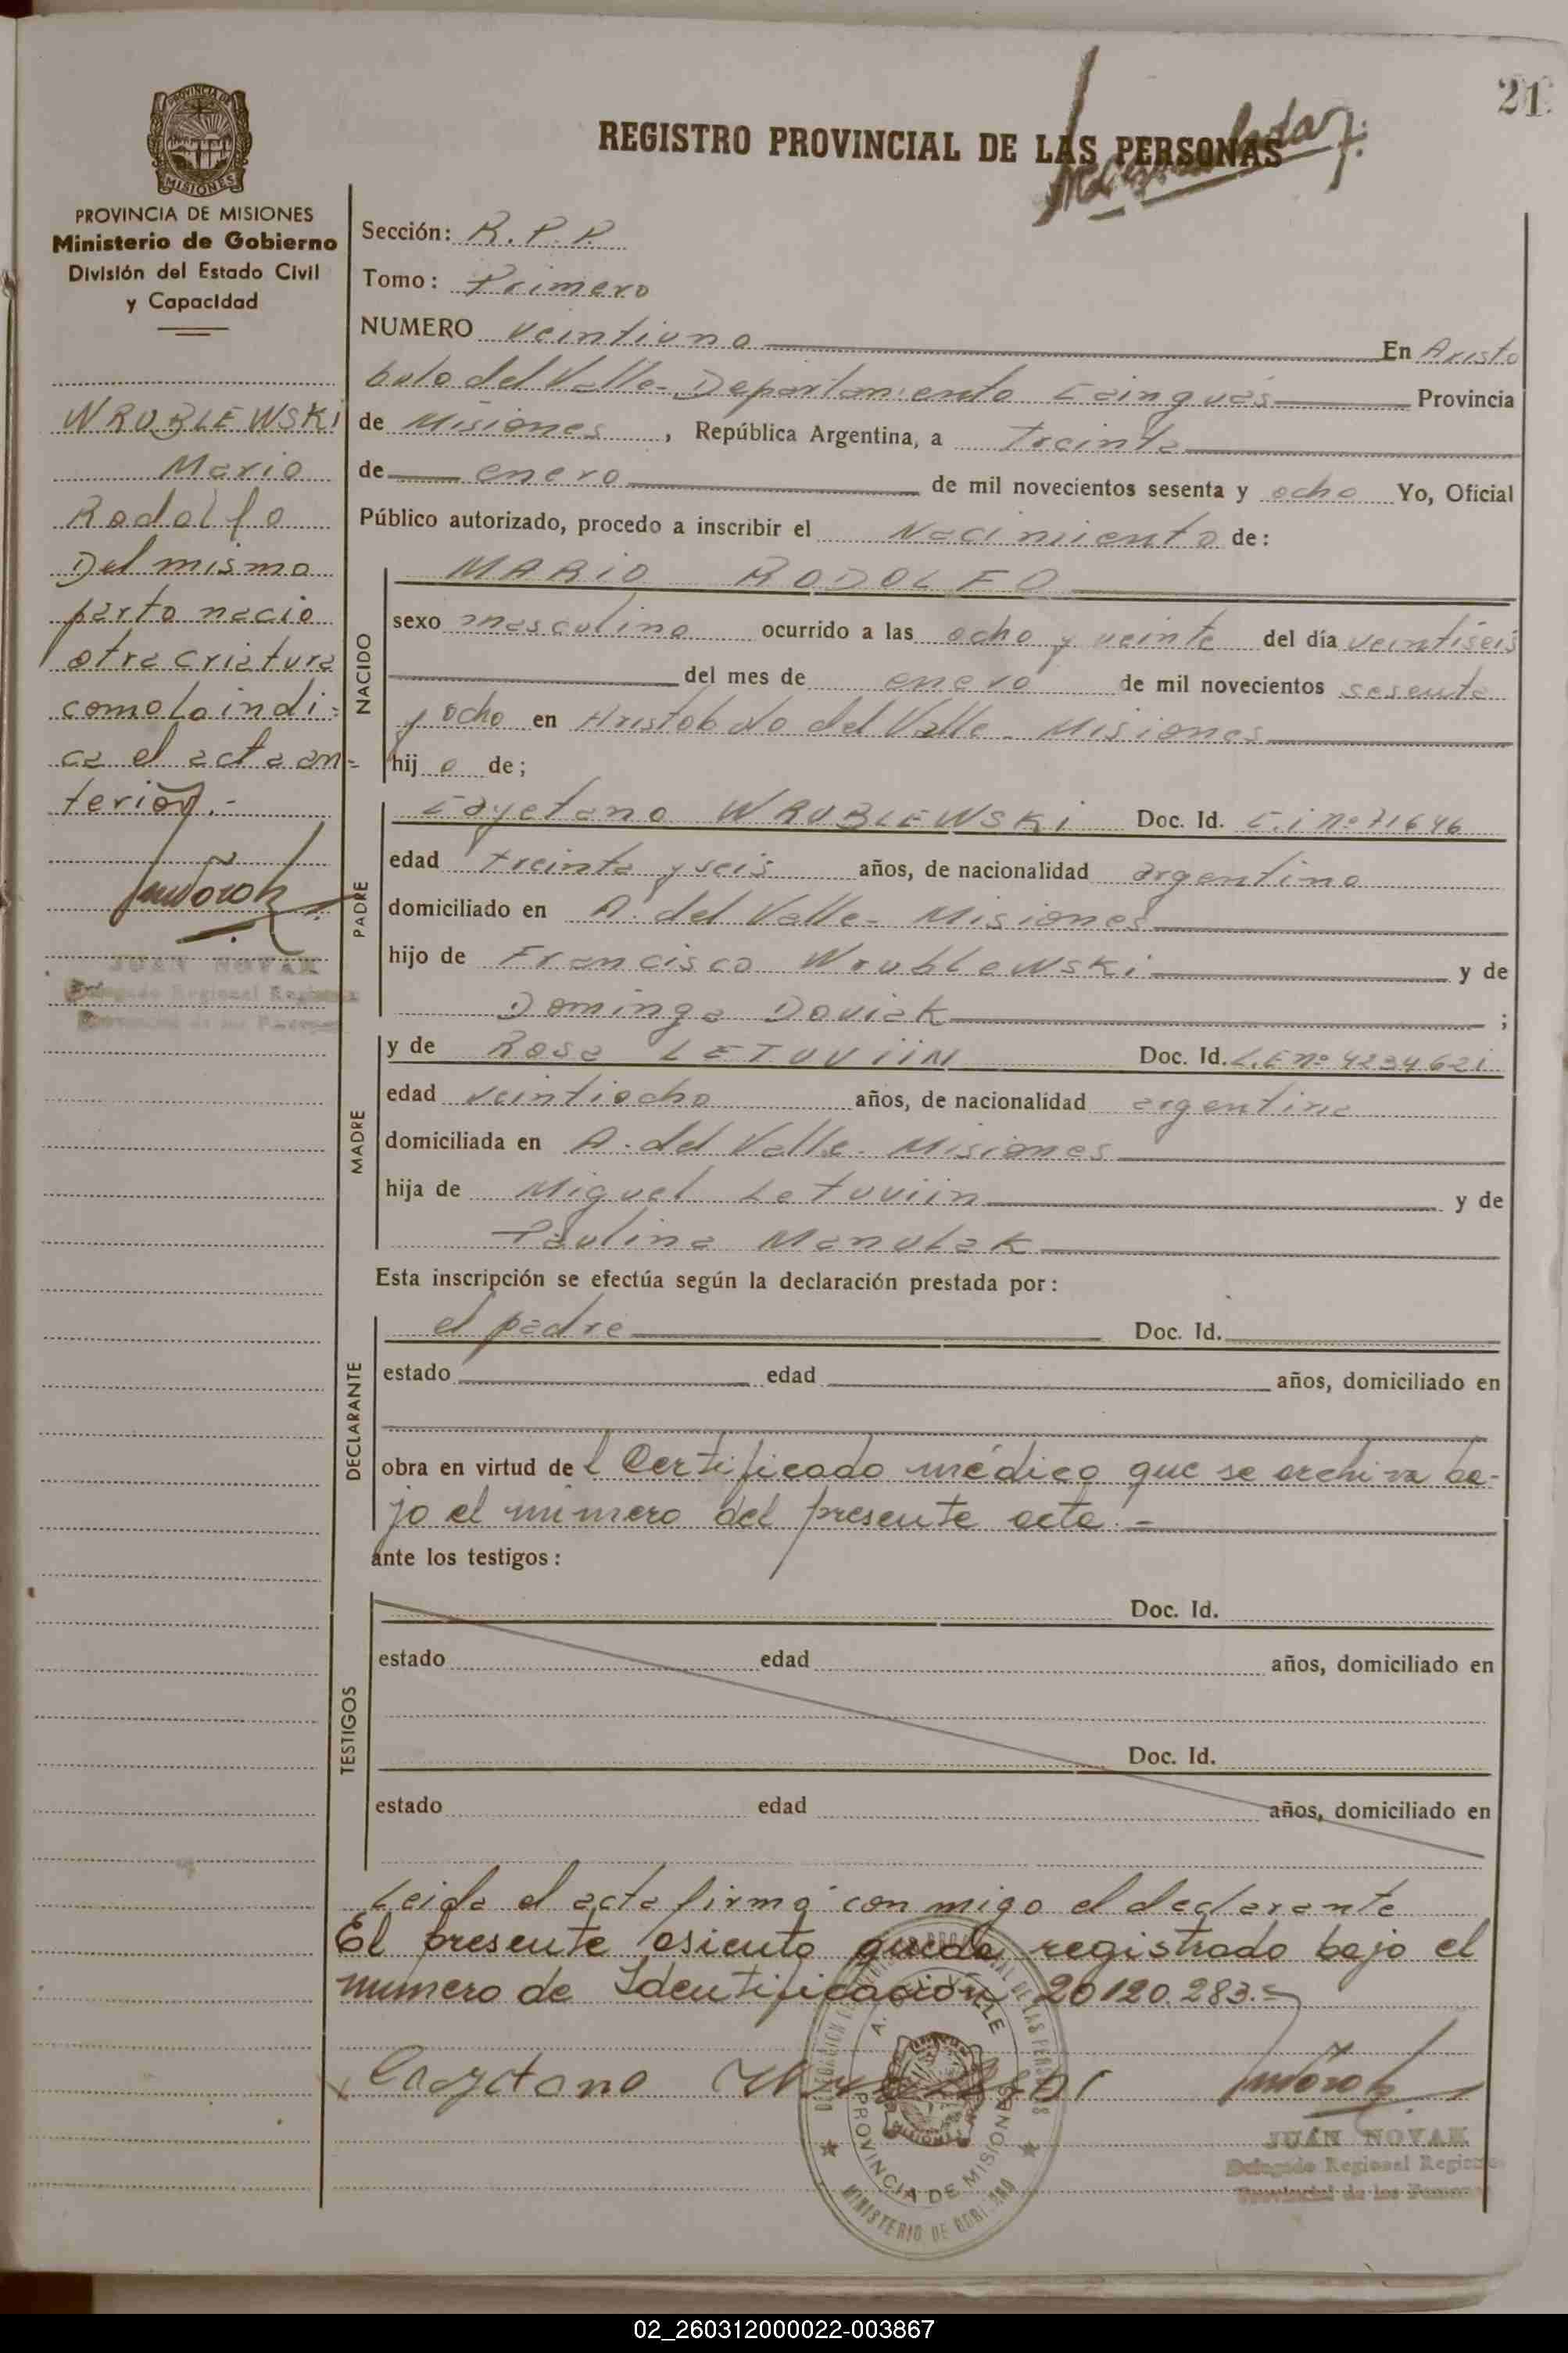 21
REGISTRO PROVINCIAL DE LAS PERSONAS
PROVINCIA DE MISIONES
Ministerio de Gobierno
División del Estado Civil
y Capacidad
WRUBLEWSKI
Mario
Rodolfo
Del mismo
parto nacio
otra criatura
como lo indi=
ca el acta an=
terior.-
JUAN NOVAK
Delegado Regional Registro
Provincial de las Personas
Sección: R.P.P.
Tomo: Primero
NUMERO veintiuno En Aristo
bulo del Valle- Departamento Cainguás Provincia
de Misiones, República Argentina, a treinta
de enero de mil novecientos sesenta y ocho Yo, Oficial
Público autorizado, procedo a inscribir el Nacimiento de:
NACIDO
MARIO RODOLFO
sexo masculino ocurrido a las ocho y veinte del día veintiseis
del mes de enero de mil novecientos sesenta
y ocho en Aristobulo del Valle - Misiones
hij o de;
PADRE
Cayetano WRUBLEWSKI Doc. Id. C.i nº 71646
edad treinta y seis años, de nacionalidad argentino
domiciliado en A. del Valle- Misiones
hijo de Francisco Wrublewski y de
Dominga Doviak ;
MADRE
y de Rosa LETUVIIN Doc. Id. L.E nº 4234621
edad veintiocho años, de nacionalidad argentina
domiciliada en A. del Valle. Misiones
hija de Miguel Letuviin y de
Paulina Manulak
Esta inscripción se efectúa según la declaración prestada por:
DECLARANTE
el padre Doc. Id.
estado edad años, domiciliado en
obra en virtud de l Certificado médico que se archiva ba-
jo el número del presente acta.-
ante los testigos:
TESTIGOS
Doc. Id.
estado edad años, domiciliado en
Doc. Id.
estado edad años, domiciliado en
Leida el acta firmó con migo el declarante
El presente asiento queda registrado bajo el
número de Identificación 20120.283.-
Cayetano
A. DEL VALLE
PROVINCIA DE MISIONES
MINISTERIO DE GOBIERNO
JUAN NOVAK
Delegado Regional Registro
Provincial de las Personas
02_260312000022-003867